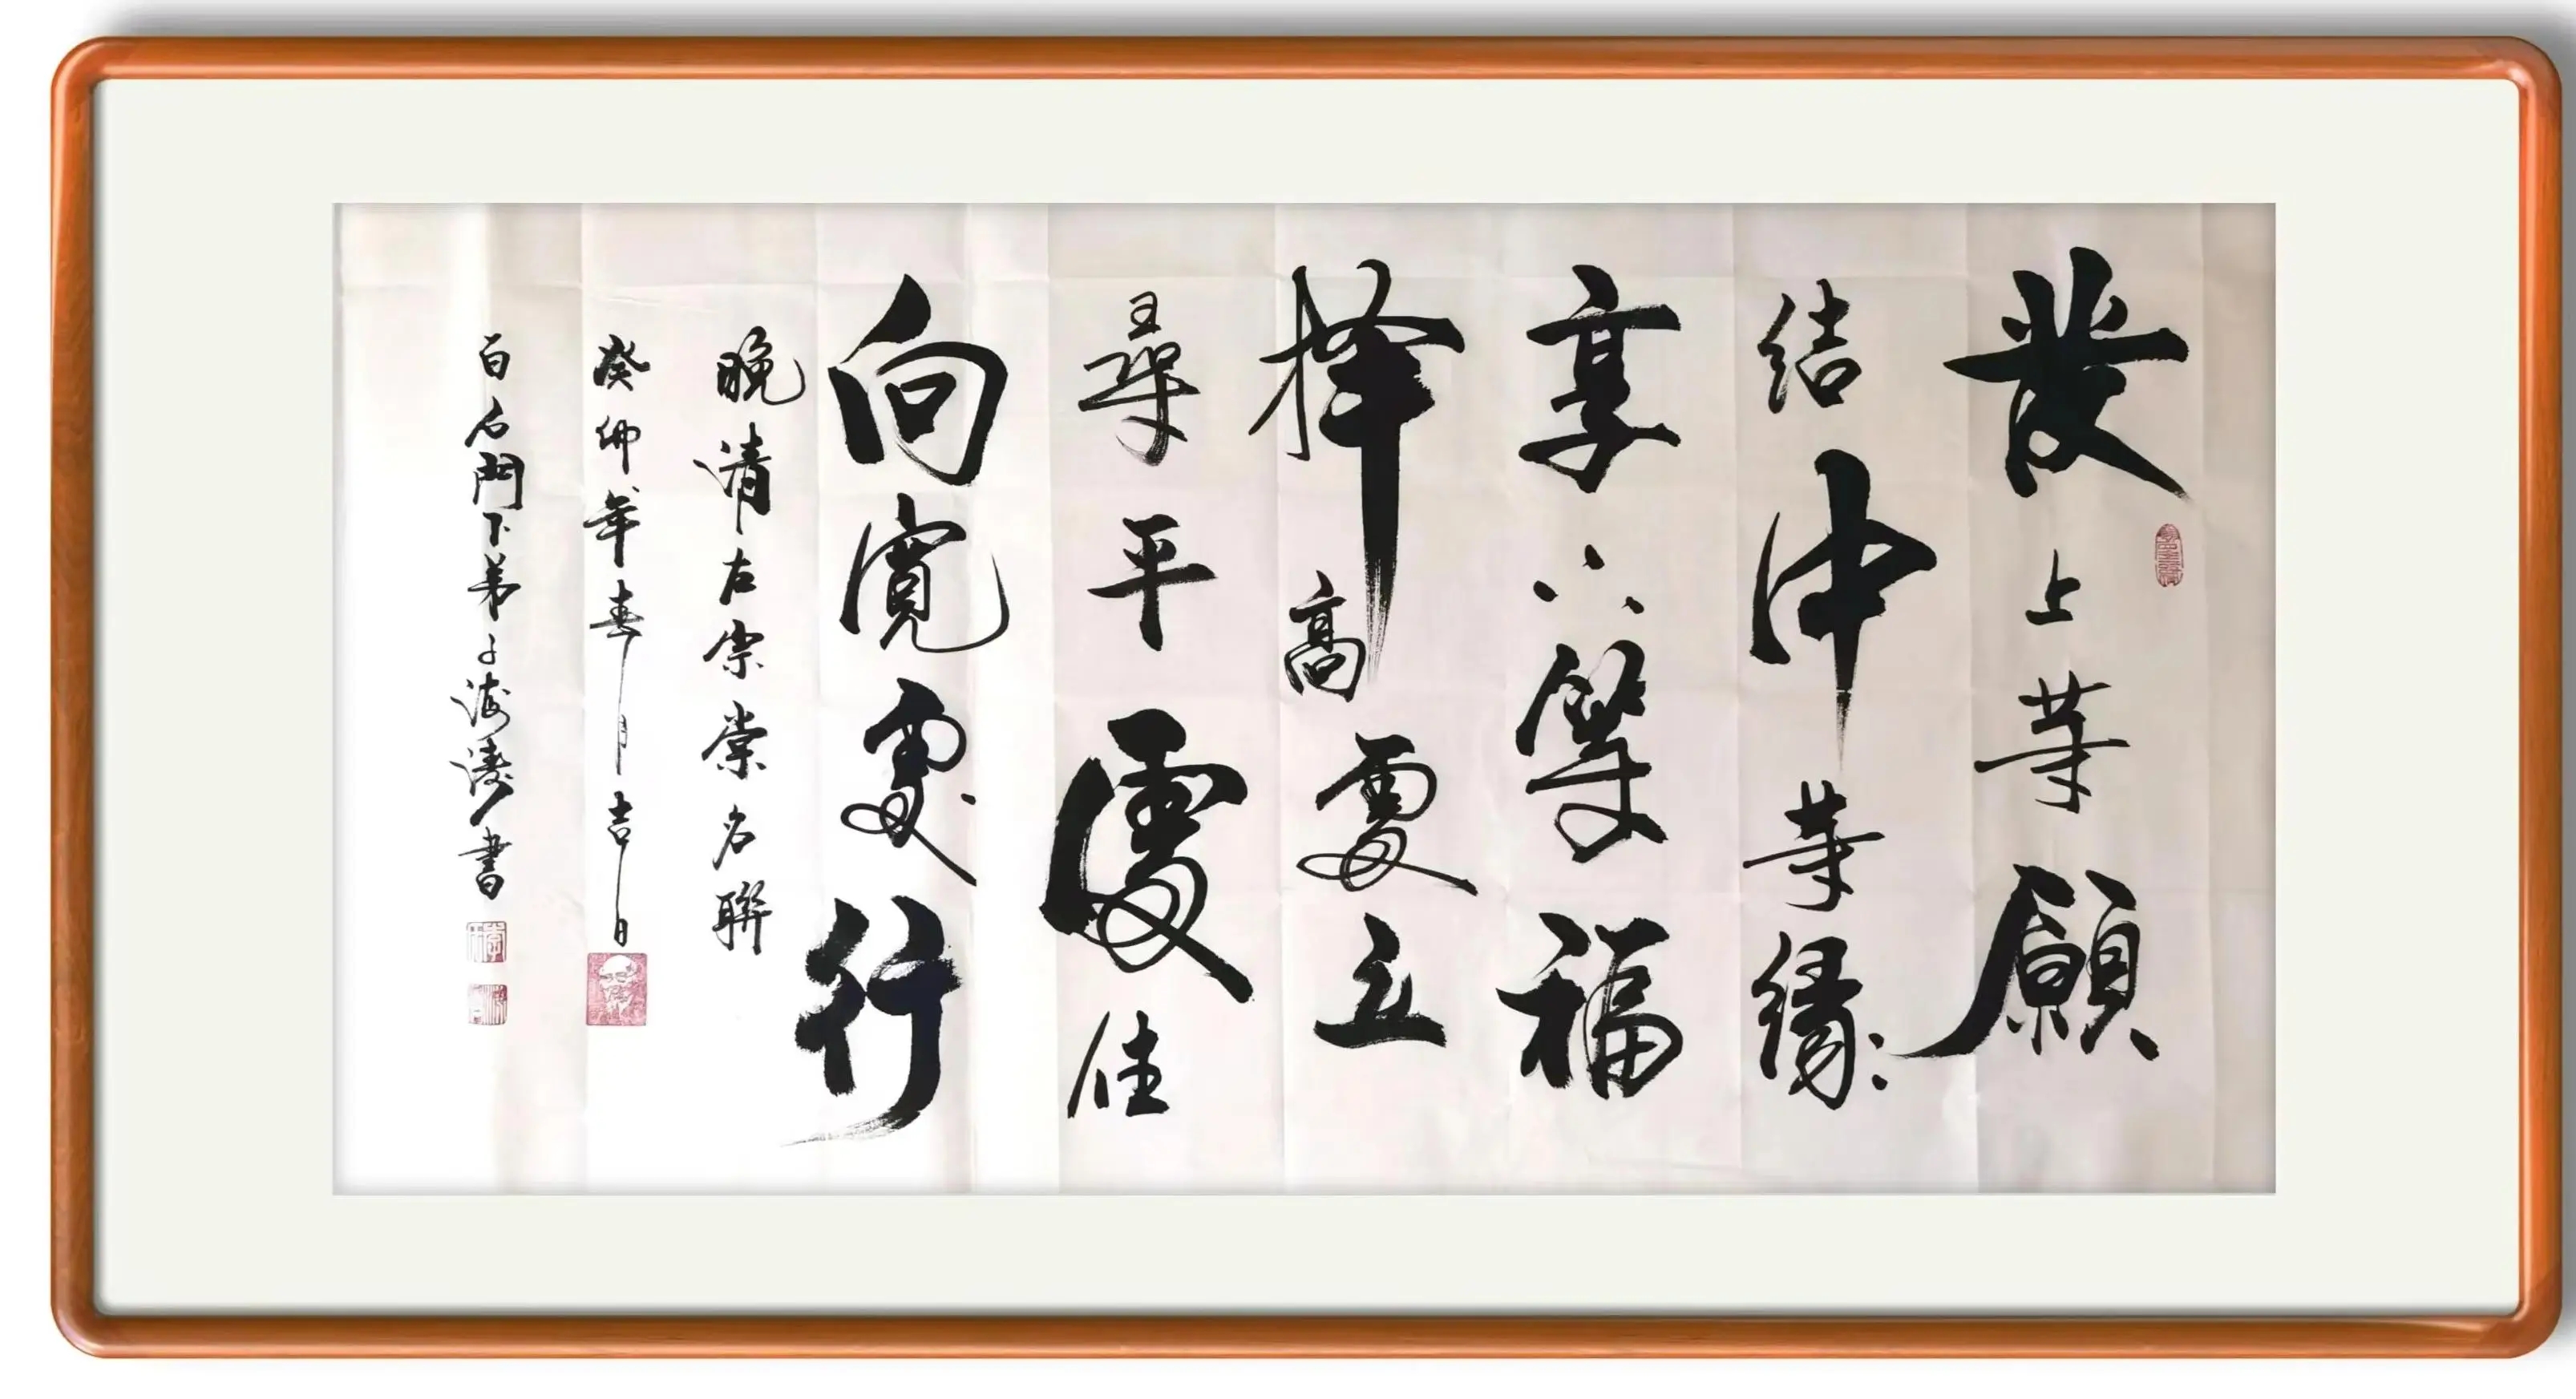 發上等願
結中等緣
享下等福
择高處立
尋平處住
向寬處行
晚清左宗棠名聯
癸卯年春月吉日
白石門下弟子海濤書